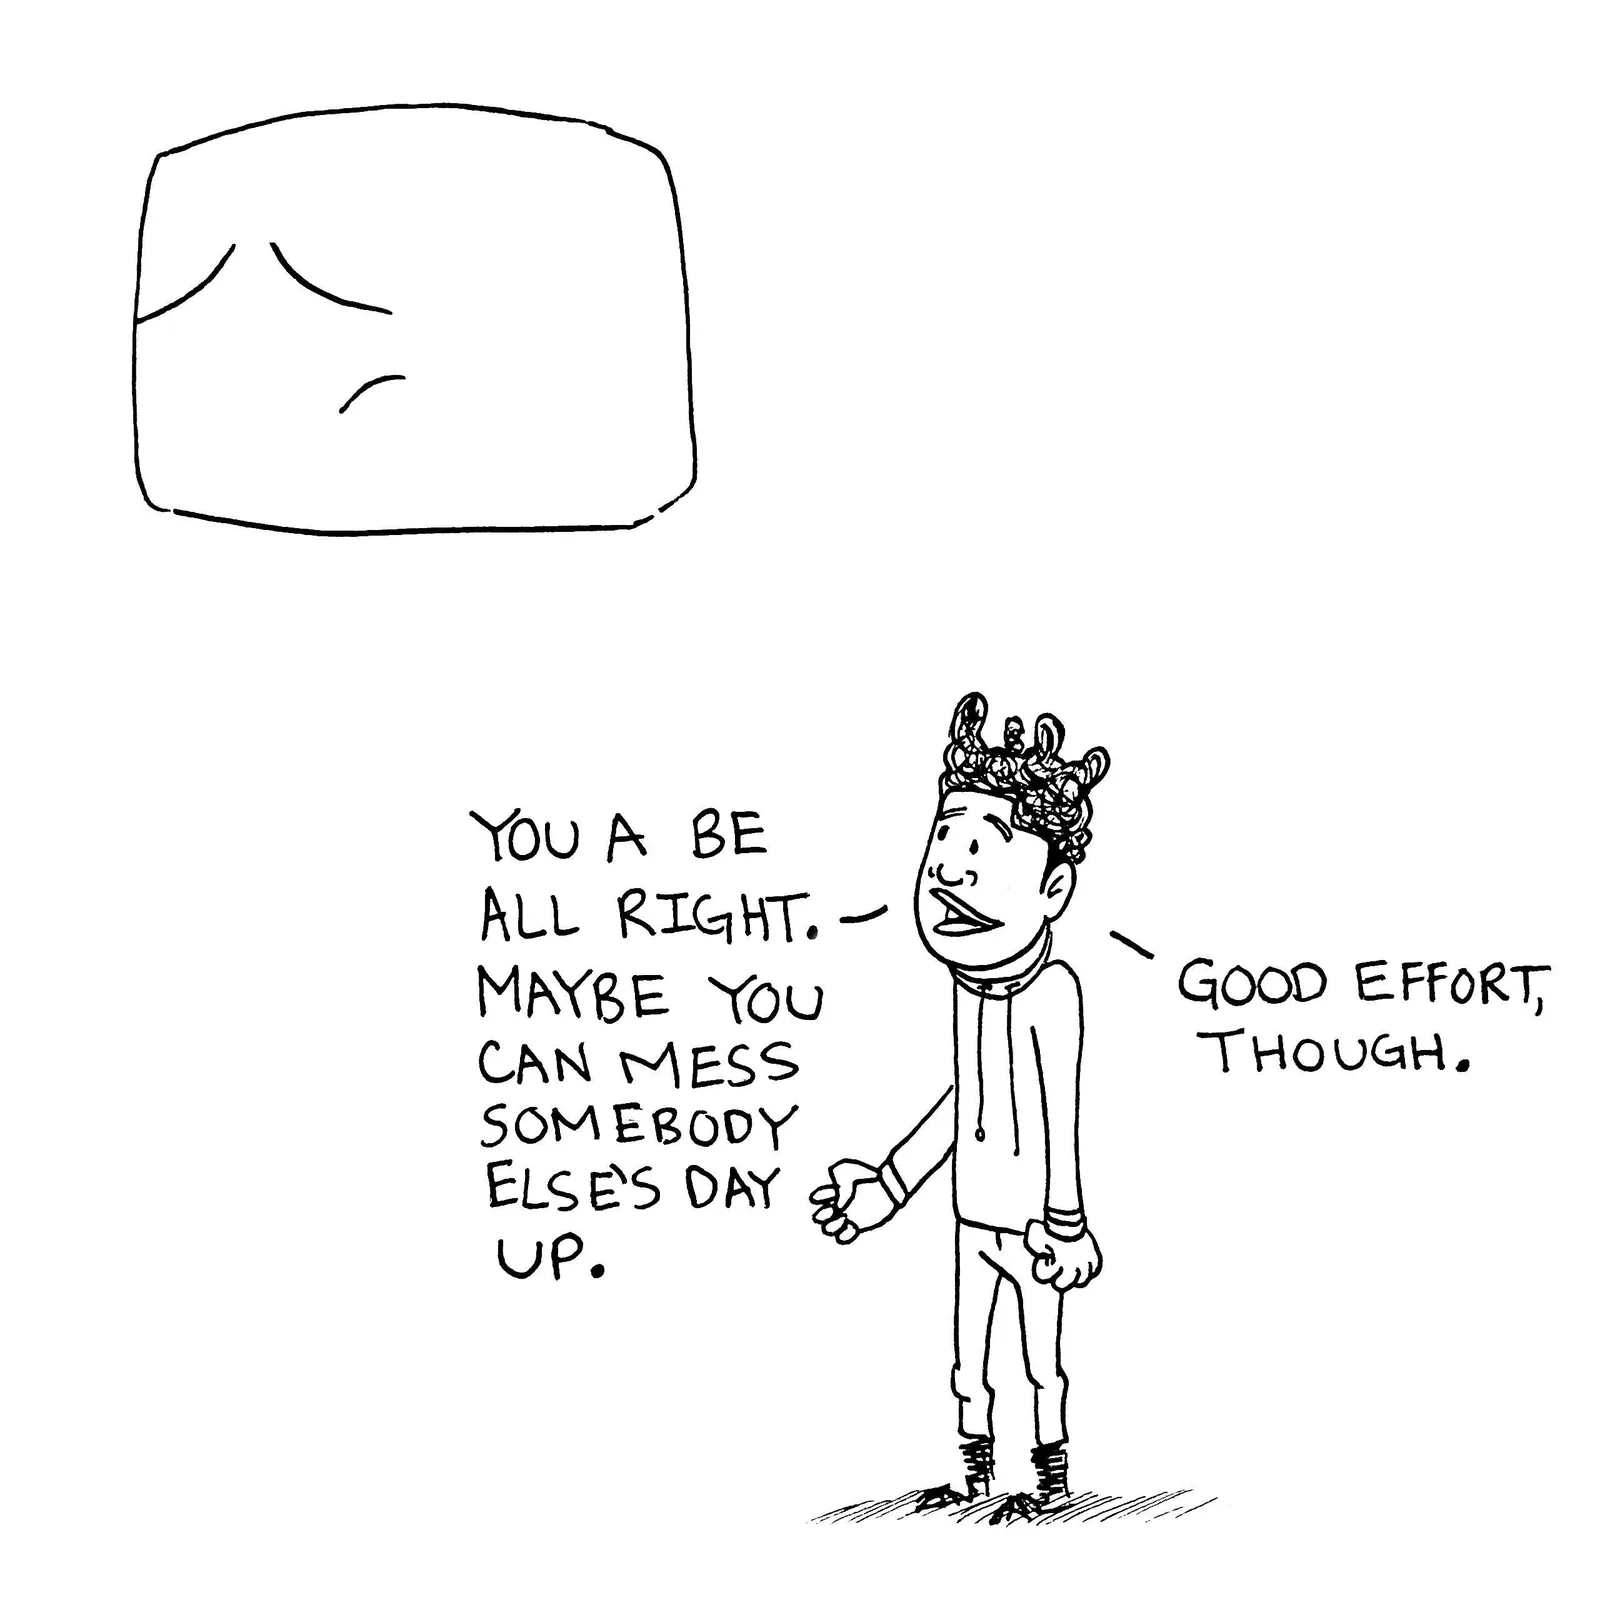 YOU A BE
ALL RIGHT.
MAYBE YOU
CAN MESS
SOMEBODY
ELSE'S DAY
UP.
GOOD EFFORT,
THOUGH.